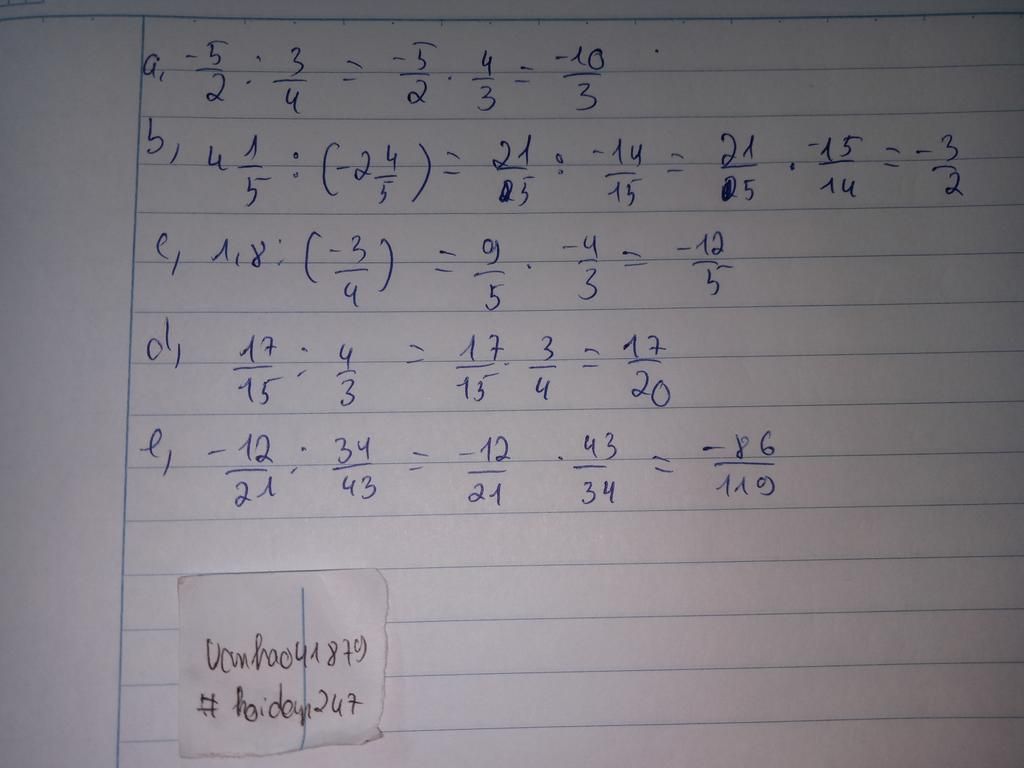 a, -5/2 : 3/4 = -5/2 . 4/3 = -10/3
b, 4 1/5 : (-2 4/5) = 21/25 : -14/15 = 21/25 . -15/14 = -3/2
c, 1,8 : (-3/4) = 9/5 . -4/3 = -12/5
d, 17/15 : 4/3 = 17/15 . 3/4 = 17/20
e, -12/21 : 34/43 = -12/21 . 43/34 = -86/119
Vanhao41879
# hoidap247